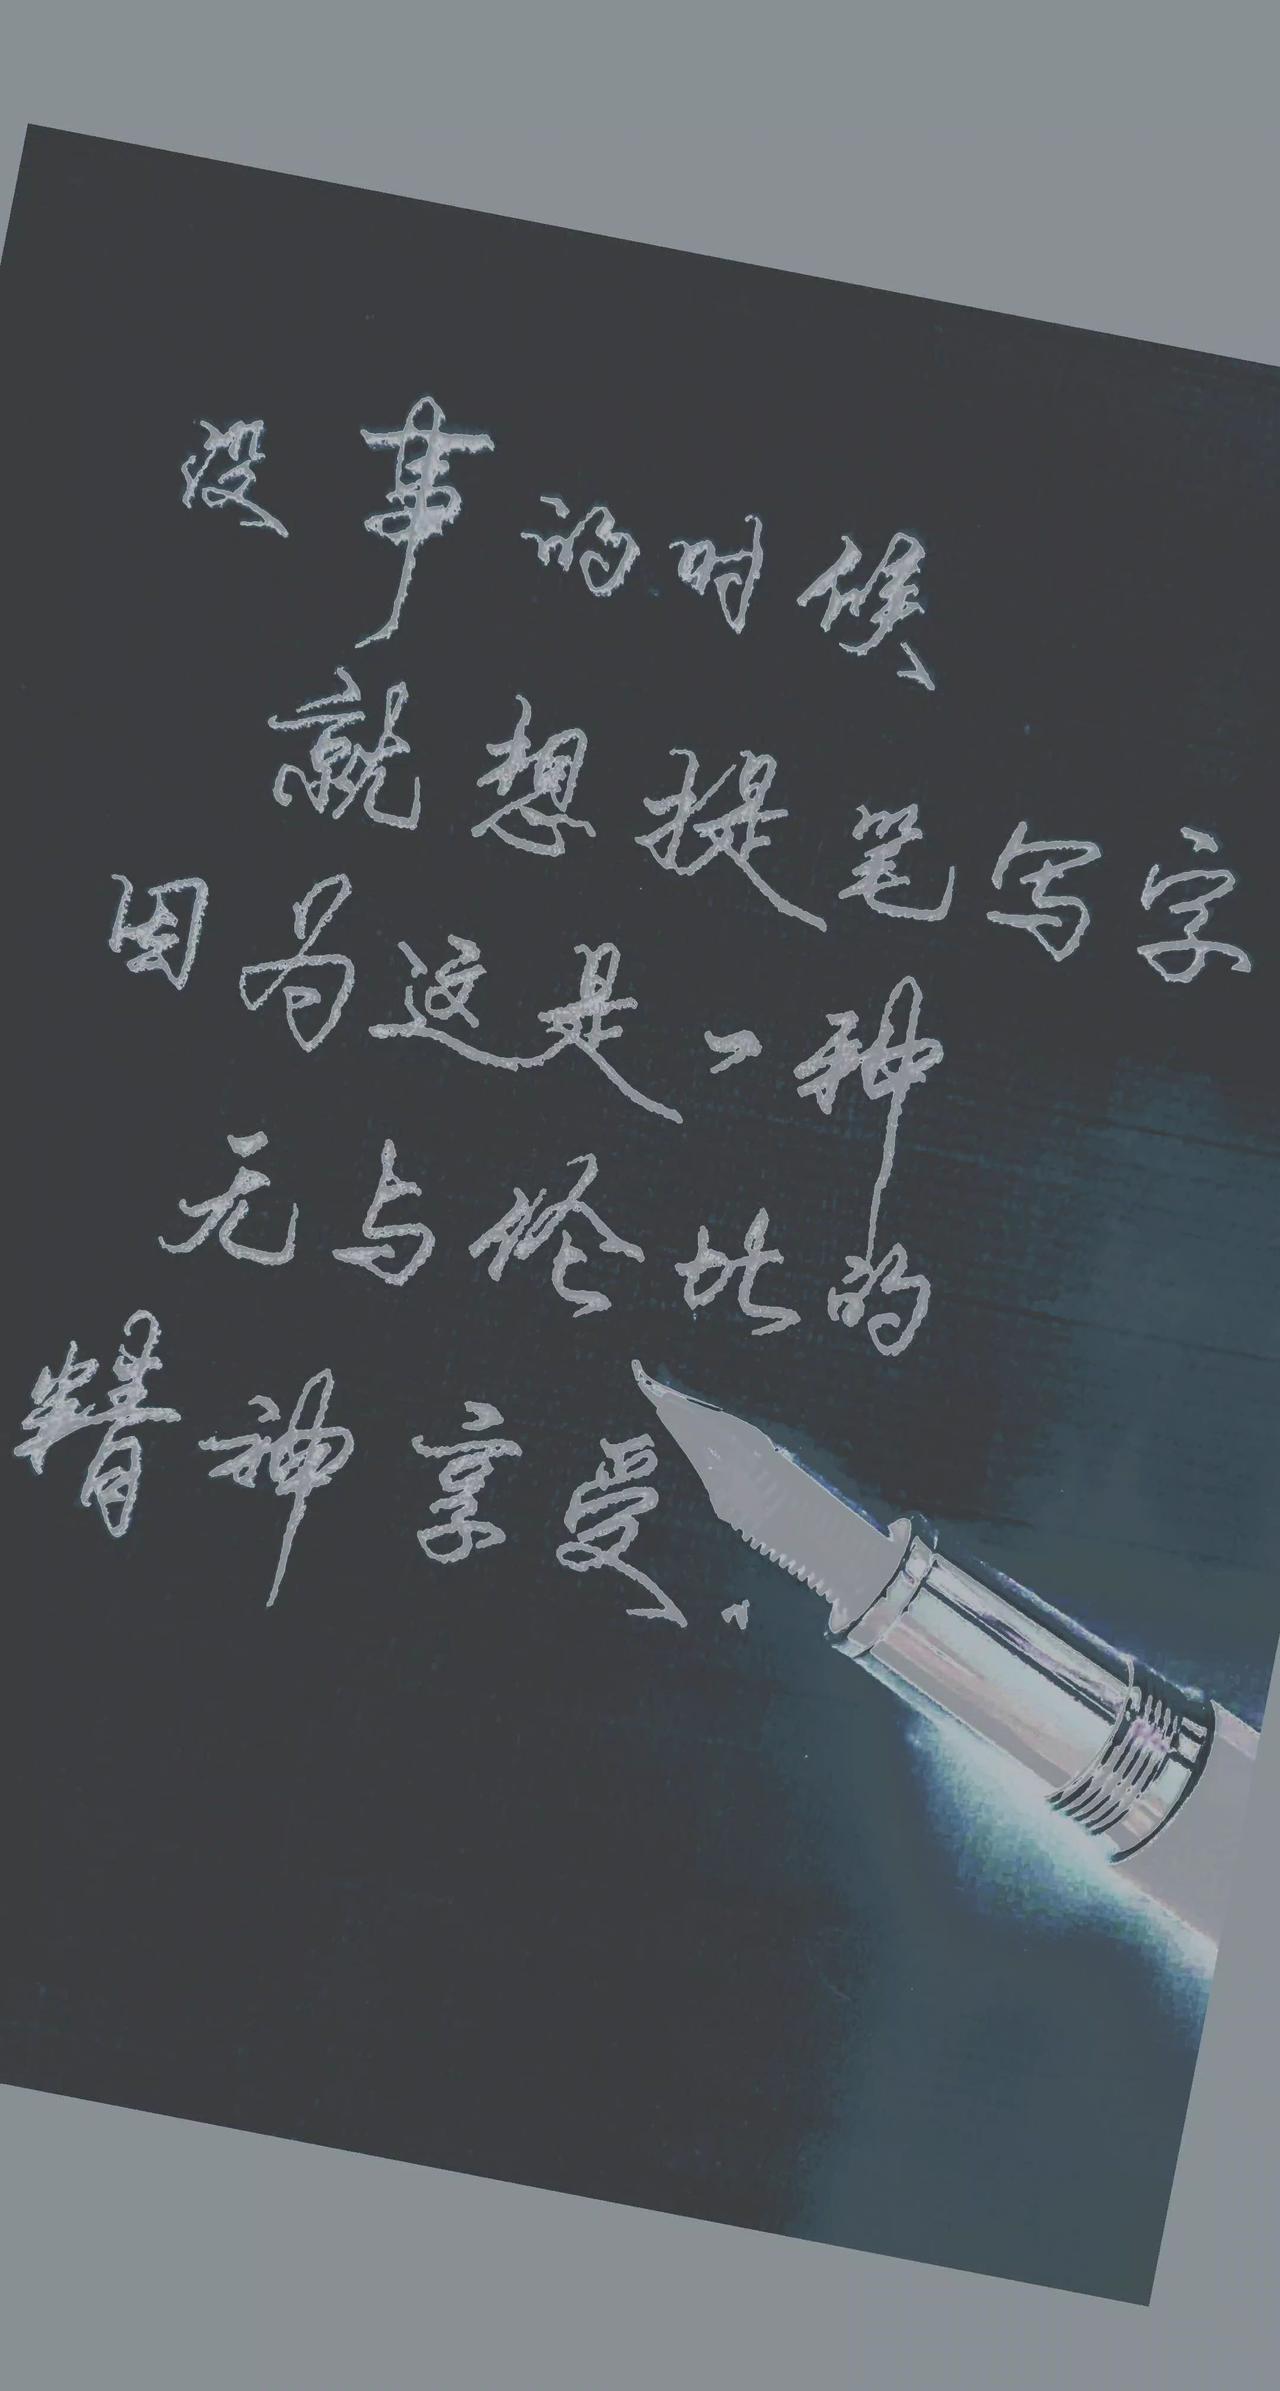 没事的时候
就想提笔写字
因为这是一种
无与伦比的
精神享受.